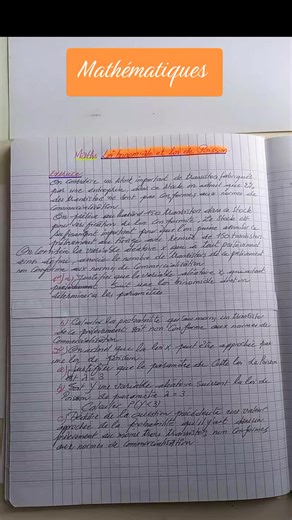 Mathématiques
Maths Loi binomiale et loi de Poisson
Exercice
On considère un stock important de transistors fabriqués
par une entreprise. dans ce stock on admet que 2%
des transistors ne sont pas conformes aux normes de
commercialisation
On prélève au hasard transistors dans ce stock
pour vérification de la conformité. Le stock est
suffisamment important pour que l'on puisse assimiler ce
prélèvement au tirage avec remise de transistors
On considère la variable aléatoire X qui à tout prélèvement
ainsi défini, associe le nombre de transistors de ce prélèvement
non conforme aux normes de commercialisation
justifier que la variable aléatoire X
suit une loi binomiale dont on
déterminera les paramètres
b) Calculer la probabilité qu'au moins un transistor
de ce prélèvement soit non conforme aux normes de
commercialisation
2°) On admet que la loi X peut être approchée par
une loi de Poisson
a) Justifier que le paramètre de cette loi de Poisson
est λ = 3
b) Soit Y une variable aléatoire suivant la loi de
Poisson de paramètre λ = 3
Calculer P(Y<3)
c) Déduire de la question précédente une valeur
approchée de la probabilité qu'il y ait dans un
prélèvement au moins trois transistors non conformes
aux normes de commercialisation